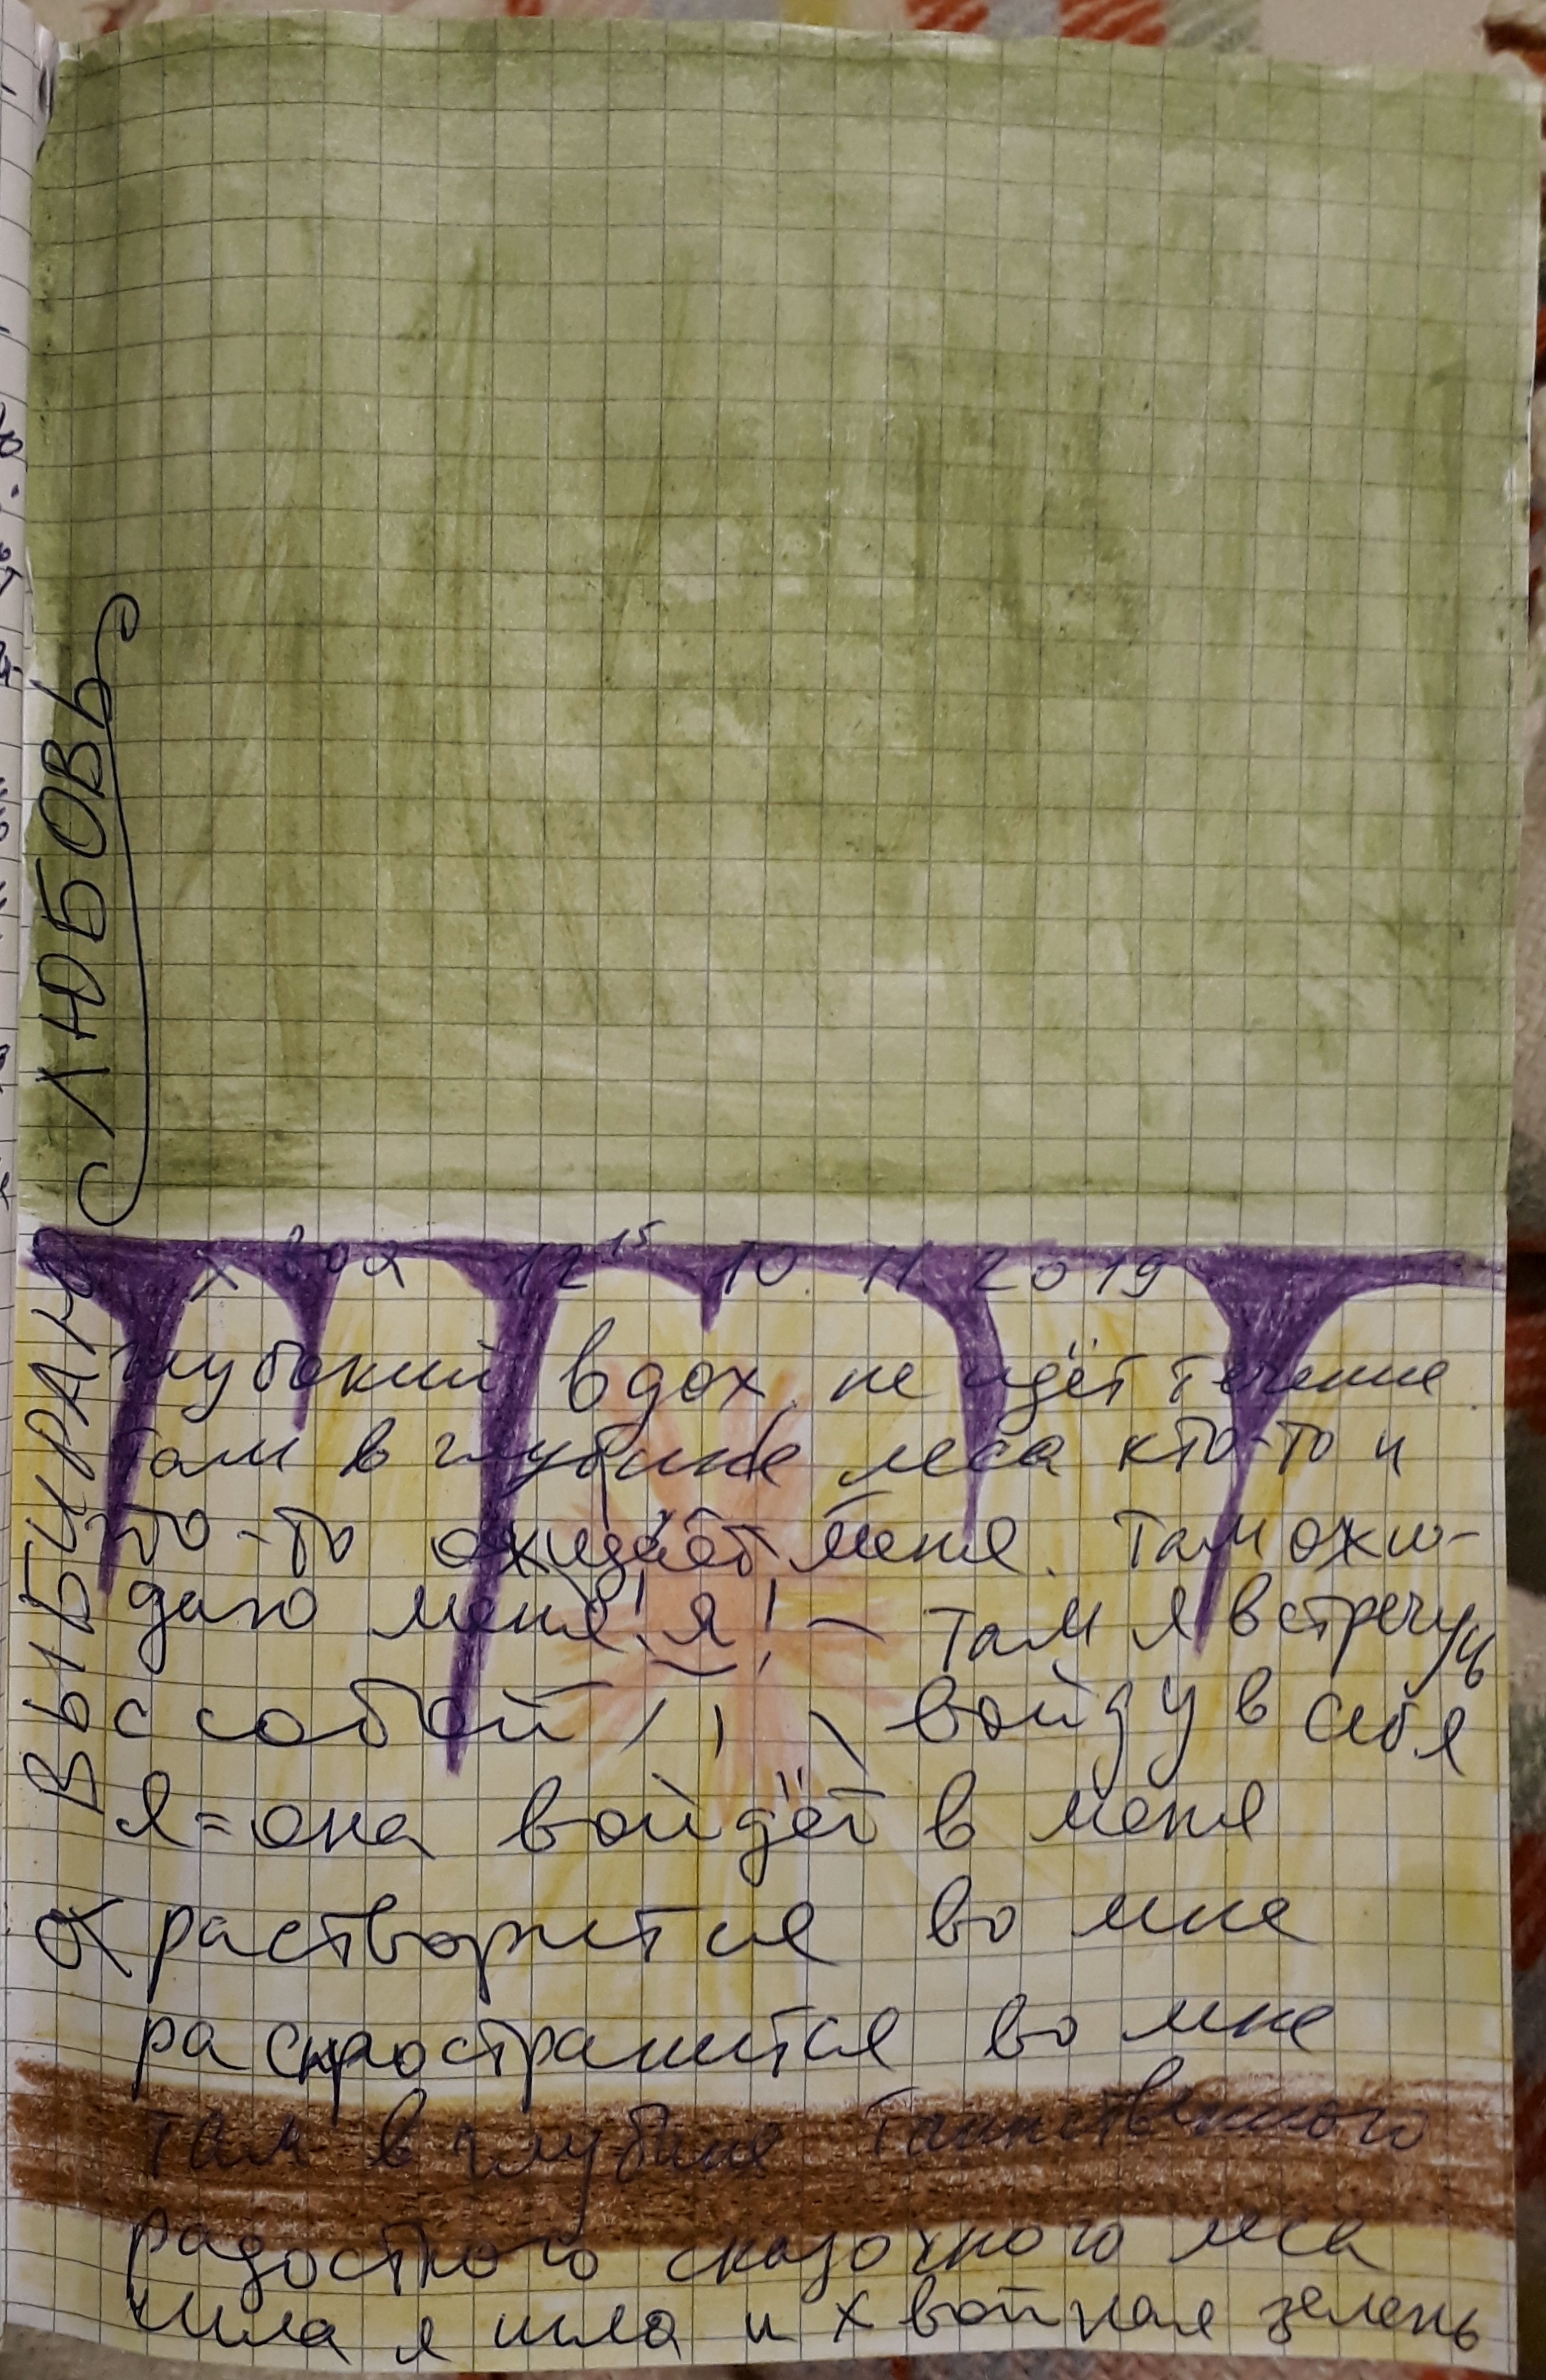 ВЫБИРАЮ ЛЮБОВЬ
хвоя 12 15 10 11 2019
глубокий вдох не идёт течение
там в глубине леса кто-то и
что-то ожидает меня. Там ожи-
даю меня! я! — там я встречусь
с собой войду в себя
я = она войдёт в меня
растворится во мне
распространится во мне
там в глубине таинственного
радостного сказочного леса
шла я шла и хвойная зелень